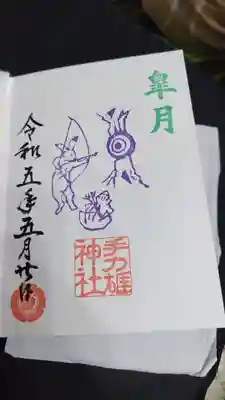 皐月
手力雄
神社
令和五年五月廿